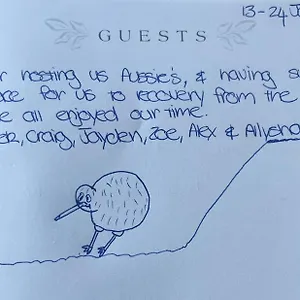 13-24 J
GUESTS
r hosting us Aussie's, & having s
ce for us to recovery from the
e all enjoyed our time.
er, Craig, Jayden, Zoe, Alex & Allysha